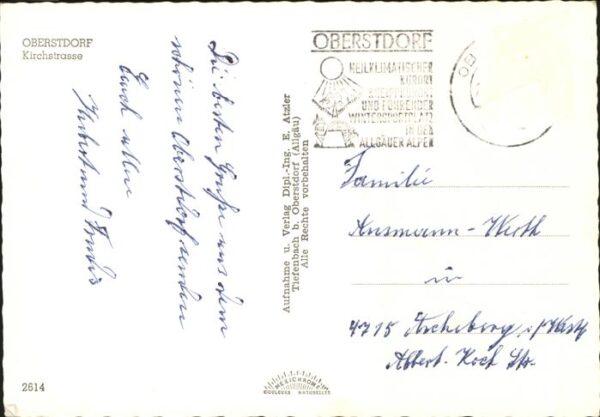 OBERSTDORF
Kirchstrasse
Die besten Grüße aus dem
schönen Oberstdorf senden
Euch allen
Herbert und
Aufnahme u. Verlag Dipl.-Ing. E. Atzler
Tiefenbach b. Oberstdorf (Allgäu)
Alle Rechte vorbehalten
OBERSTDORF
HEILKLIMATISCHER
KURORT
KNEIPPKURORT
UND FÜHRENDER
WINTERSPORTPLATZ
IN DEN
ALLGÄUER ALPEN
OB
Familie
Ansmann-Werth
in
4715 Ascheberg i/Westf
Albert-Koch Str.
2614
MEXICHROME
COULEURS NATURELLES